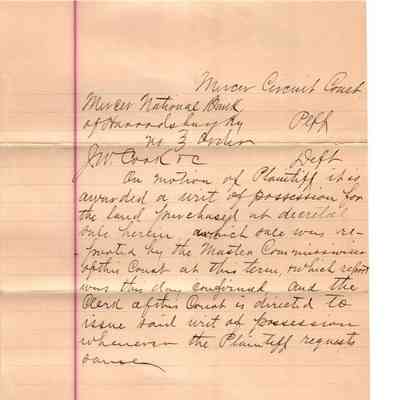 Mercer Circuit Court
Mercer National Bank
of Harrodsburg Ky Plff
vs. } Order
JW Cook &c Deft
On motion of Plaintiff it is
awarded a writ of possession for
the land purchased at decretal
sale herein which sale was re-
ported by the Master Commissioner
of this Court at this term, & which report
was this day confirmed and the
Clerk of this Court is directed to
issue said writ of possession
whenever the Plaintiff requests
same